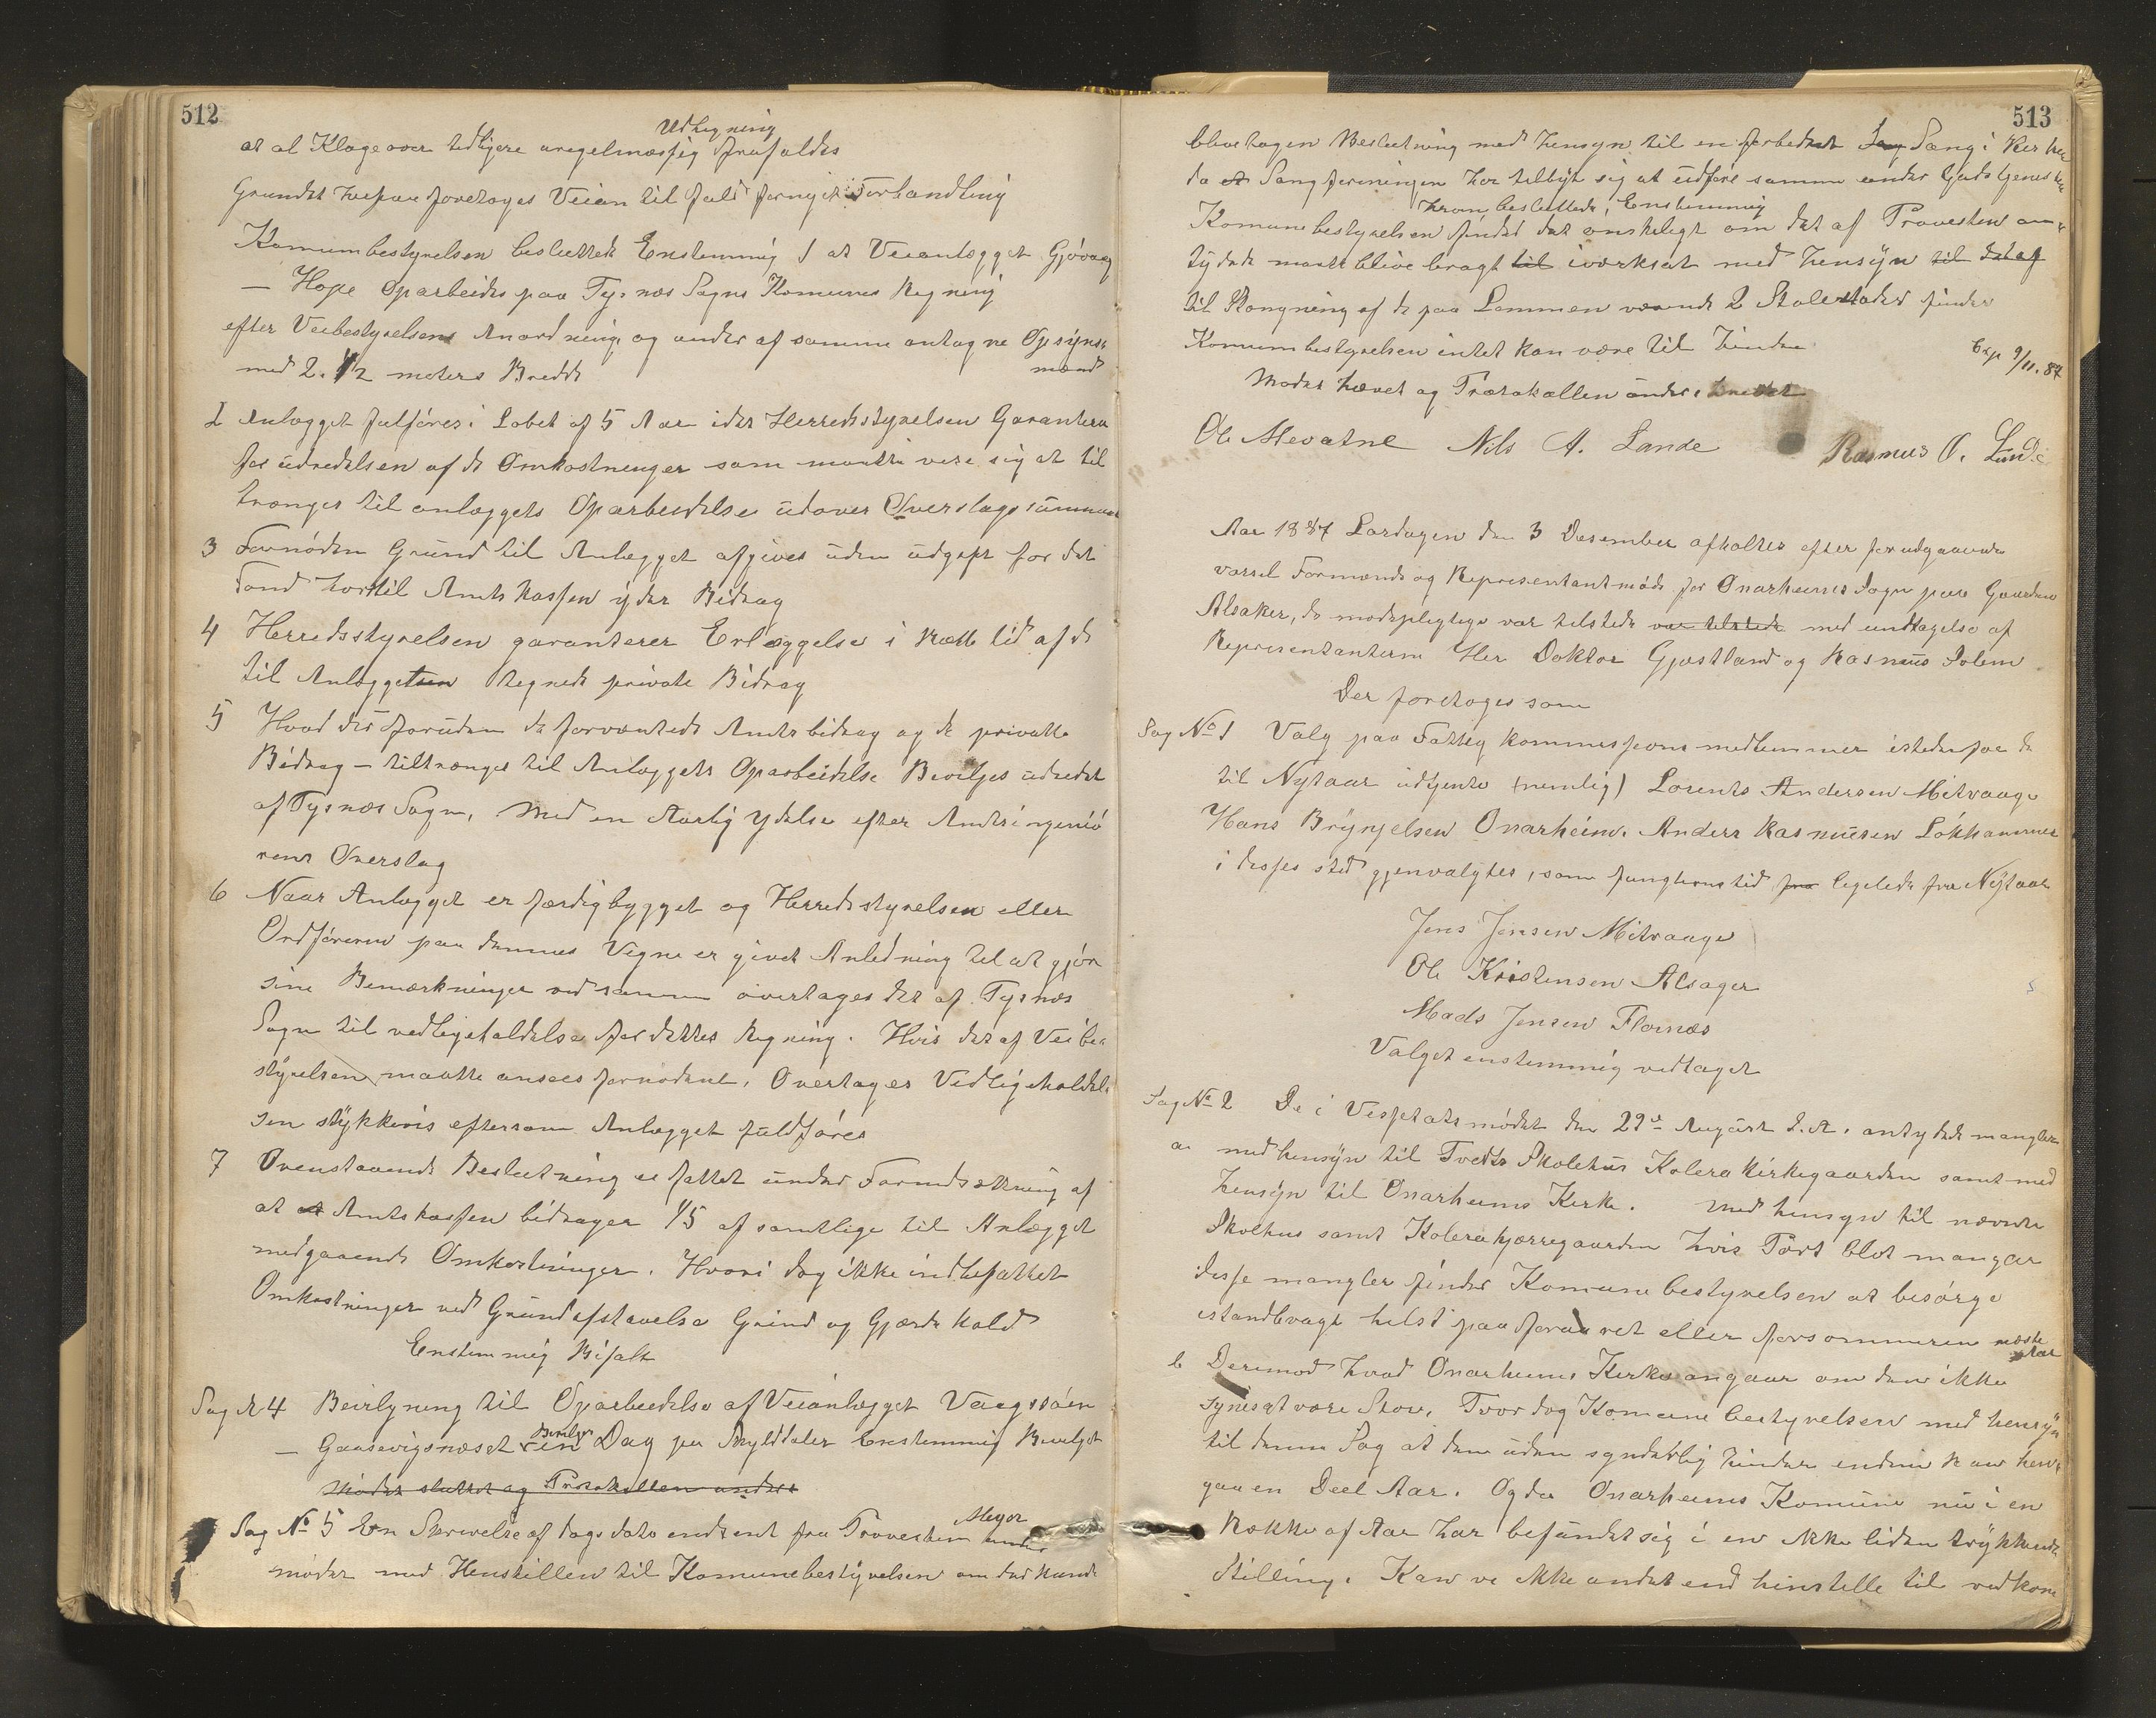 512
Udlegning
at al Klage over tidligere uregelmæssig frafaldes
Grundet hvepaa foretoges Veien til fuld fornyet Forhandling
Komunbestyrelsen besluttede Enstemmig 1 at Veianlægget Gjövaag
— Hope Oparbeides paa Tysnæs Sogns Komunes Regning
efter Veibestyrelsens Anordning, og under af samme antagne Opsyns-
mænd
med 2. 1/2 meters Bredde
2 Anlægget fulføres i Løbet af 5 Aar idet Herredsstyrelsen Garanterer
for üdredelsen af de Omkostninger som maatte vise sig at til
trænges til anlæggets Oparbeidelse üdover Overslagssümmen
3 Fornöden Gründ til Anlægget afgives üden üdgift for det
Fond hvortil Amtskassen yder Bidrag
4 Herredsstyrelsen garanterer Erlæggelse i rætte tid af de
til Anlægget tegnede private Bidrag
5 Hvad der foruden de forventede Amtsbidrag og de private
Bidrag – tiltrænges til Anlæggets Oparbeidelse Bevilges üdredet
af Tysnæs Sogn, Med en Aarlig Ydelse efter Amtsingeniö
rens Overslag
6 Naar Anlægget er færdigbygget og Herredsstyrelsen eller
Ordføreren paa dennes Vegne er givet Anledning til at gjöre
sine Bemærkninger ved samme overtages det af Tysnæs
Sogn til vedligeholdelse for dettes Regning. Hvis det af Veibe-
styrelsen maatte ansees fornødent, Overtages Vedligeholdel
sen stÿkkevis eftersom Anlægget füldføres
7 Ovenstaaende Beslutning er fattet ünder Forudsætning af
at Amtskassen bidrager 1/5 af samtlige til Anlægget
medgaaende Omkostninger. Hvori dog ikke indbefattet
Omkostninger ved Gründafstaaelse Grind og Gjærdehold
Enstemmig Bifalt
Sag N 4 Bevilgning til Oparbeidelse af Veianlægget Vaagsöen
— Gaasevigsnæset Bevilges en Dag per Skylddaler Enstemmig Bevilget
Mödet sluttet og Protokollen undert
Sag No 5 En Skrivelse af dags dato indsent fra Provesten Meyer under
mödet med Henstillen til Komunebestyrelsen om der kunde
513
blive tagen Beslutning med hensyn til en forbedret Sang i Kirken
da Sangforeningen har tilbÿt sig at üdføre samme under Guds tjenesten
hvom besluttede, Enstemmig
Komunebestyrelsen finder det ønskeligt om det af Provesten an-
tydede maatte blive bragt til iværksat med hensyn til det af
til Rengning af de paa Lemmen værende 2 Stolestader finder
Komunbestyrelsen intet kan være til hinder
Exp 9/11. 87
Mødet hævet og Protokollen under skrevet
Ole Mevatne Nils A. Lande Rasmus O. Lunde
Aar 1887 Lørdagen den 3 Desember afholtes efter forudgaaende
varsel Formænds og Representantmöde for Onarheims Sogn paa Gaarden
Alsaker, de mødepligtige var tilstede var tilstede med undtagelse af
Representanterne Her Doktor Gjæstland og Rasmüs Solem
Der foretoges som
Sag No 1 Valg paa Fattigkommissions medlemmer istedenfor de
til Nytaar üdgjente (nemlig) Lorents Andersen Mitvaage
Hans Brÿnjelsen Onarheim. Anders Rasmüsen Lökhammer
i disses sted gjenvalgtes, som funghtions tid fra ligeledes fra Nÿtaar
Jens Jensen Mitvaage
Ole Kristensen Alsager
Mads Jensen Flornæs
Valget enstemmig vedtaget
Sag No 2 De i Visetatsmødet den 29de August d. A. antydede mangler
a med hensÿn til Tvedts Skolehüs Kolerakirkegaarden samt med
hensÿn til Onarheims Kirke. Med hensyn til nævnte
Skolhus samt Kolerakjærregaarden hvis Port blot mangar
disse mangler finder Komunebestyrelsen at besörge
istandbragt helst paa foraaret eller forsommeren næste Aar
b Derimod hvad Onarheims Kirke angaar om den ikke
synes at være Stor, Tror dog Komunebestyrelsen med hensyn
til denne Sag at den üden synderlig hinder endnü kan hen-
gaa en Deel Aar. Og da Onarheims Komüne nü i en
Række af Aar har befündet sig i en ikke liden trÿkkende
Stilling. Kan vi ikke andet end hinstille til vedkom